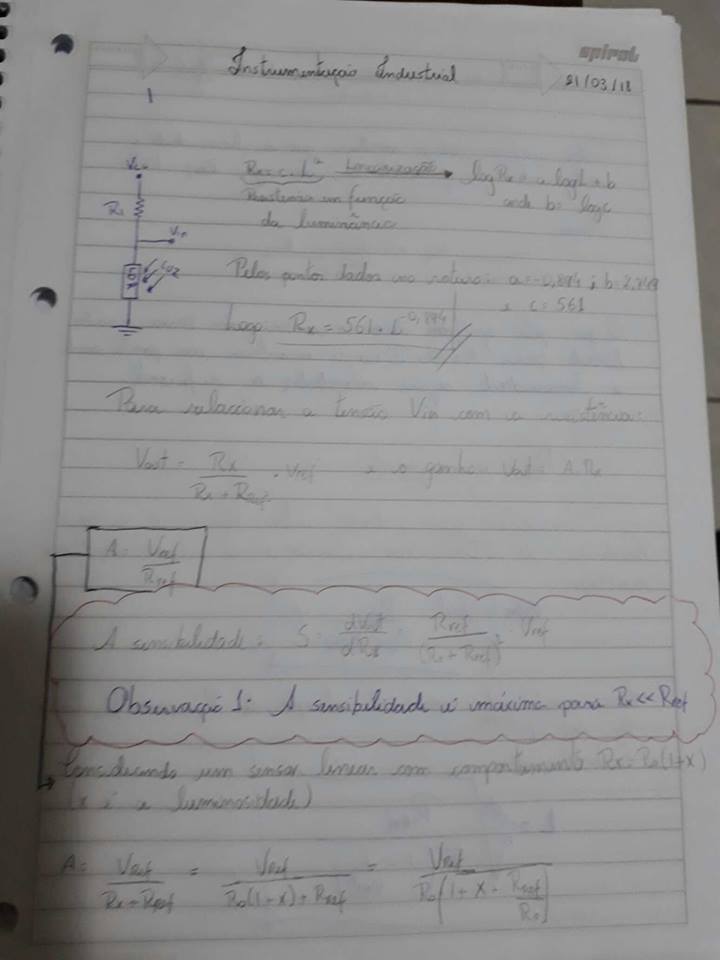 spiral
Instrumentação Industrial
21/03/18
1
Vcc
Rx = c.L^a Linearização → log Rx = a logL + b
Resistência em função onde b = logc
da luminância
R1
Vin
LDR
Pelos pontos dados no roteiro: a = -0,894 ; b = 2,749
e c = 561
Logo: Rx = 561 . L^-0,894
Para relacionar a tensão Vin com a resistência:
Vout = Rx / (Rx + Rref) . Vref e o ganho: Vout = A.Rx
A = Vref / Rref
A sensibilidade: S = dVout / dRx = Rref / (Rx + Rref)² . Vref
Observação 1: A sensibilidade é máxima para Rx << Rref
Considerando um sensor linear com comportamento Rx = Ro(1+x)
(x é a luminosidade)
A = Vref / (Rx + Rref) = Vref / (Ro(1+x) + Rref) = Vref / (Ro[1 + x + Rref/Ro])